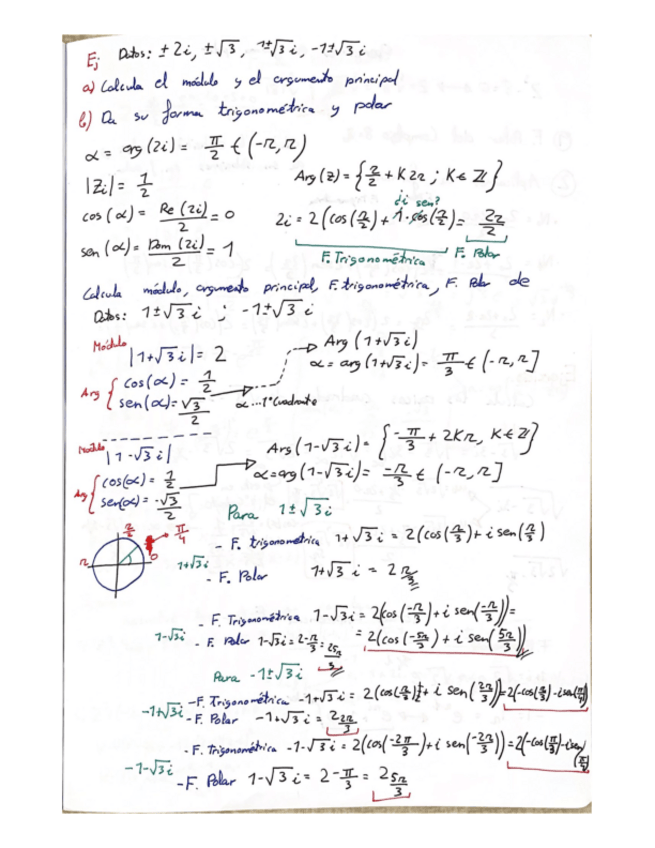 Ej Datos: ± 2i, ± √3, 1±√3 i, -1±√3 i
a) Calcula el módulo y el argumento principal
b) Da su forma trigonométrica y polar
α = arg (2i) = π/2 ∈ (-π, π)
Arg (z) = { π/2 + K 2π ; K ∈ Z }
|Zi| = 1/2
¿i sen?
cos (α) = Re (2i)/2 = 0
2i = 2 (cos(π/2) + 1·cos(π/2)) = 2π/2
F. Trigonométrica F. Polar
sen (α) = Dom (2i)/2 = 1
Calcula módulo, argumento principal, F. trigonométrica, F. Polar de
Datos: 1±√3 i , -1±√3 i
Módulo |1+√3 i| = 2
Arg (1+√3 i)
α = arg (1+√3 i) = π/3 ∈ (-π, π]
Arg { cos(α) = 1/2
sen(α) = √3/2
α ... 1º Cuadrante
Módulo |1-√3 i|
Arg (1-√3 i) = { -π/3 + 2Kπ, K ∈ Z }
α = arg (1-√3 i) = -π/3 ∈ (-π, π]
Arg { cos(α) = 1/2
sen(α) = -√3/2
Para 1±√3 i
π/2 π/4
π 0
1+√3 i
- F. trigonométrica 1+√3 i = 2 (cos(π/3) + i sen(π/3))
- F. Polar 1+√3 i = 2 π/3
1-√3 i
- F. Trigonométrica 1-√3 i = 2(cos(-π/3) + i sen(-π/3)) =
= 2(cos(-5π/3) + i sen(5π/3))
- F. Polar 1-√3 i = 2 -π/3 = 2 5π/3
Para -1±√3 i
-1+√3 i
- F. Trigonométrica -1+√3 i = 2 (cos(2π/3) + i sen(2π/3)) = 2(-cos(π/3) - i sen(π/3))
- F. Polar -1+√3 i = 2 2π/3
-1-√3 i
- F. Trigonométrica -1-√3 i = 2(cos(-2π/3) + i sen(-2π/3)) = 2(-cos(π/3) - i sen(π/3))
- F. Polar 1-√3 i = 2 -π/3 = 2 5π/3